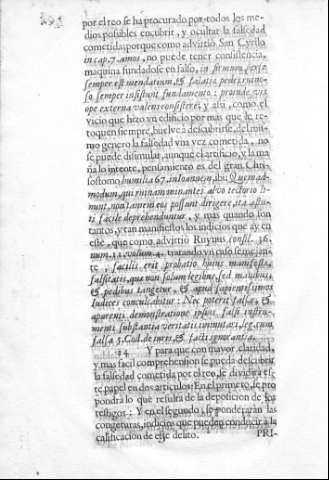 por el reo se ha procurado por todos los me-
dios posibles encubrir, y ocultar la falsedad
cometida, porque como advirtio San Cyrilo
in cap. 7. amos, no puede tener consistencia,
maquina fundada se en falso, in firmum,
semper est mendatium, & falatia pedestrinio
so semper insistunt fundamento: proinde vix
ope externa valent consistere; y assi, como el
vicio que hizo vn edificio por mas que se re-
toquen siempre, buelve à descubrirse, del mis-
mo genero la falsedad vna vez cometida, no
se puede disimular, aunque el artificio, y la ma
ña lo intente, pensamiento es del gran Chri-
sostomo humilia 67. in Ioannem, ibi: Quem ad-
modum, qui ruinam minantes alvo tectorio li-
nunt, non tamen eos possunt dirigere, ita astu-
ti facile deprehenduntur, y mas quando son
tantos, y tan manifiestos los indicios que ay en
este, que como advirtiò Ruynus, consil. 36.
num. 11. volum. 4. tratando vn caso semejan-
te, facilis erit probatio huius manifesta
falsitatis, que non solum legibus, sed manibus,
& pedibus tangetur, & apud sapientissimos
Iudices conculcabitur: Nec poterit falsa, &
aparenti demonstratione ipsius falsi instru-
menti substantia veritatis immutari, leg. cum
falsa 5. Cod. de iuris, & facti ignorantia.
14 Y para que con mayor claridad,
y mas facil comprehension se pueda descubrir
la falsedad cometida por el reo, se dividirà es
te papel en dos articulos: En el primero, se pro
pondrà lo que resulta de la deposicion de los
testigos: Y en el segundo, se ponderaràn las
congeturas, indicios que pueden conducir à la
calificacion de este delito. PRI-